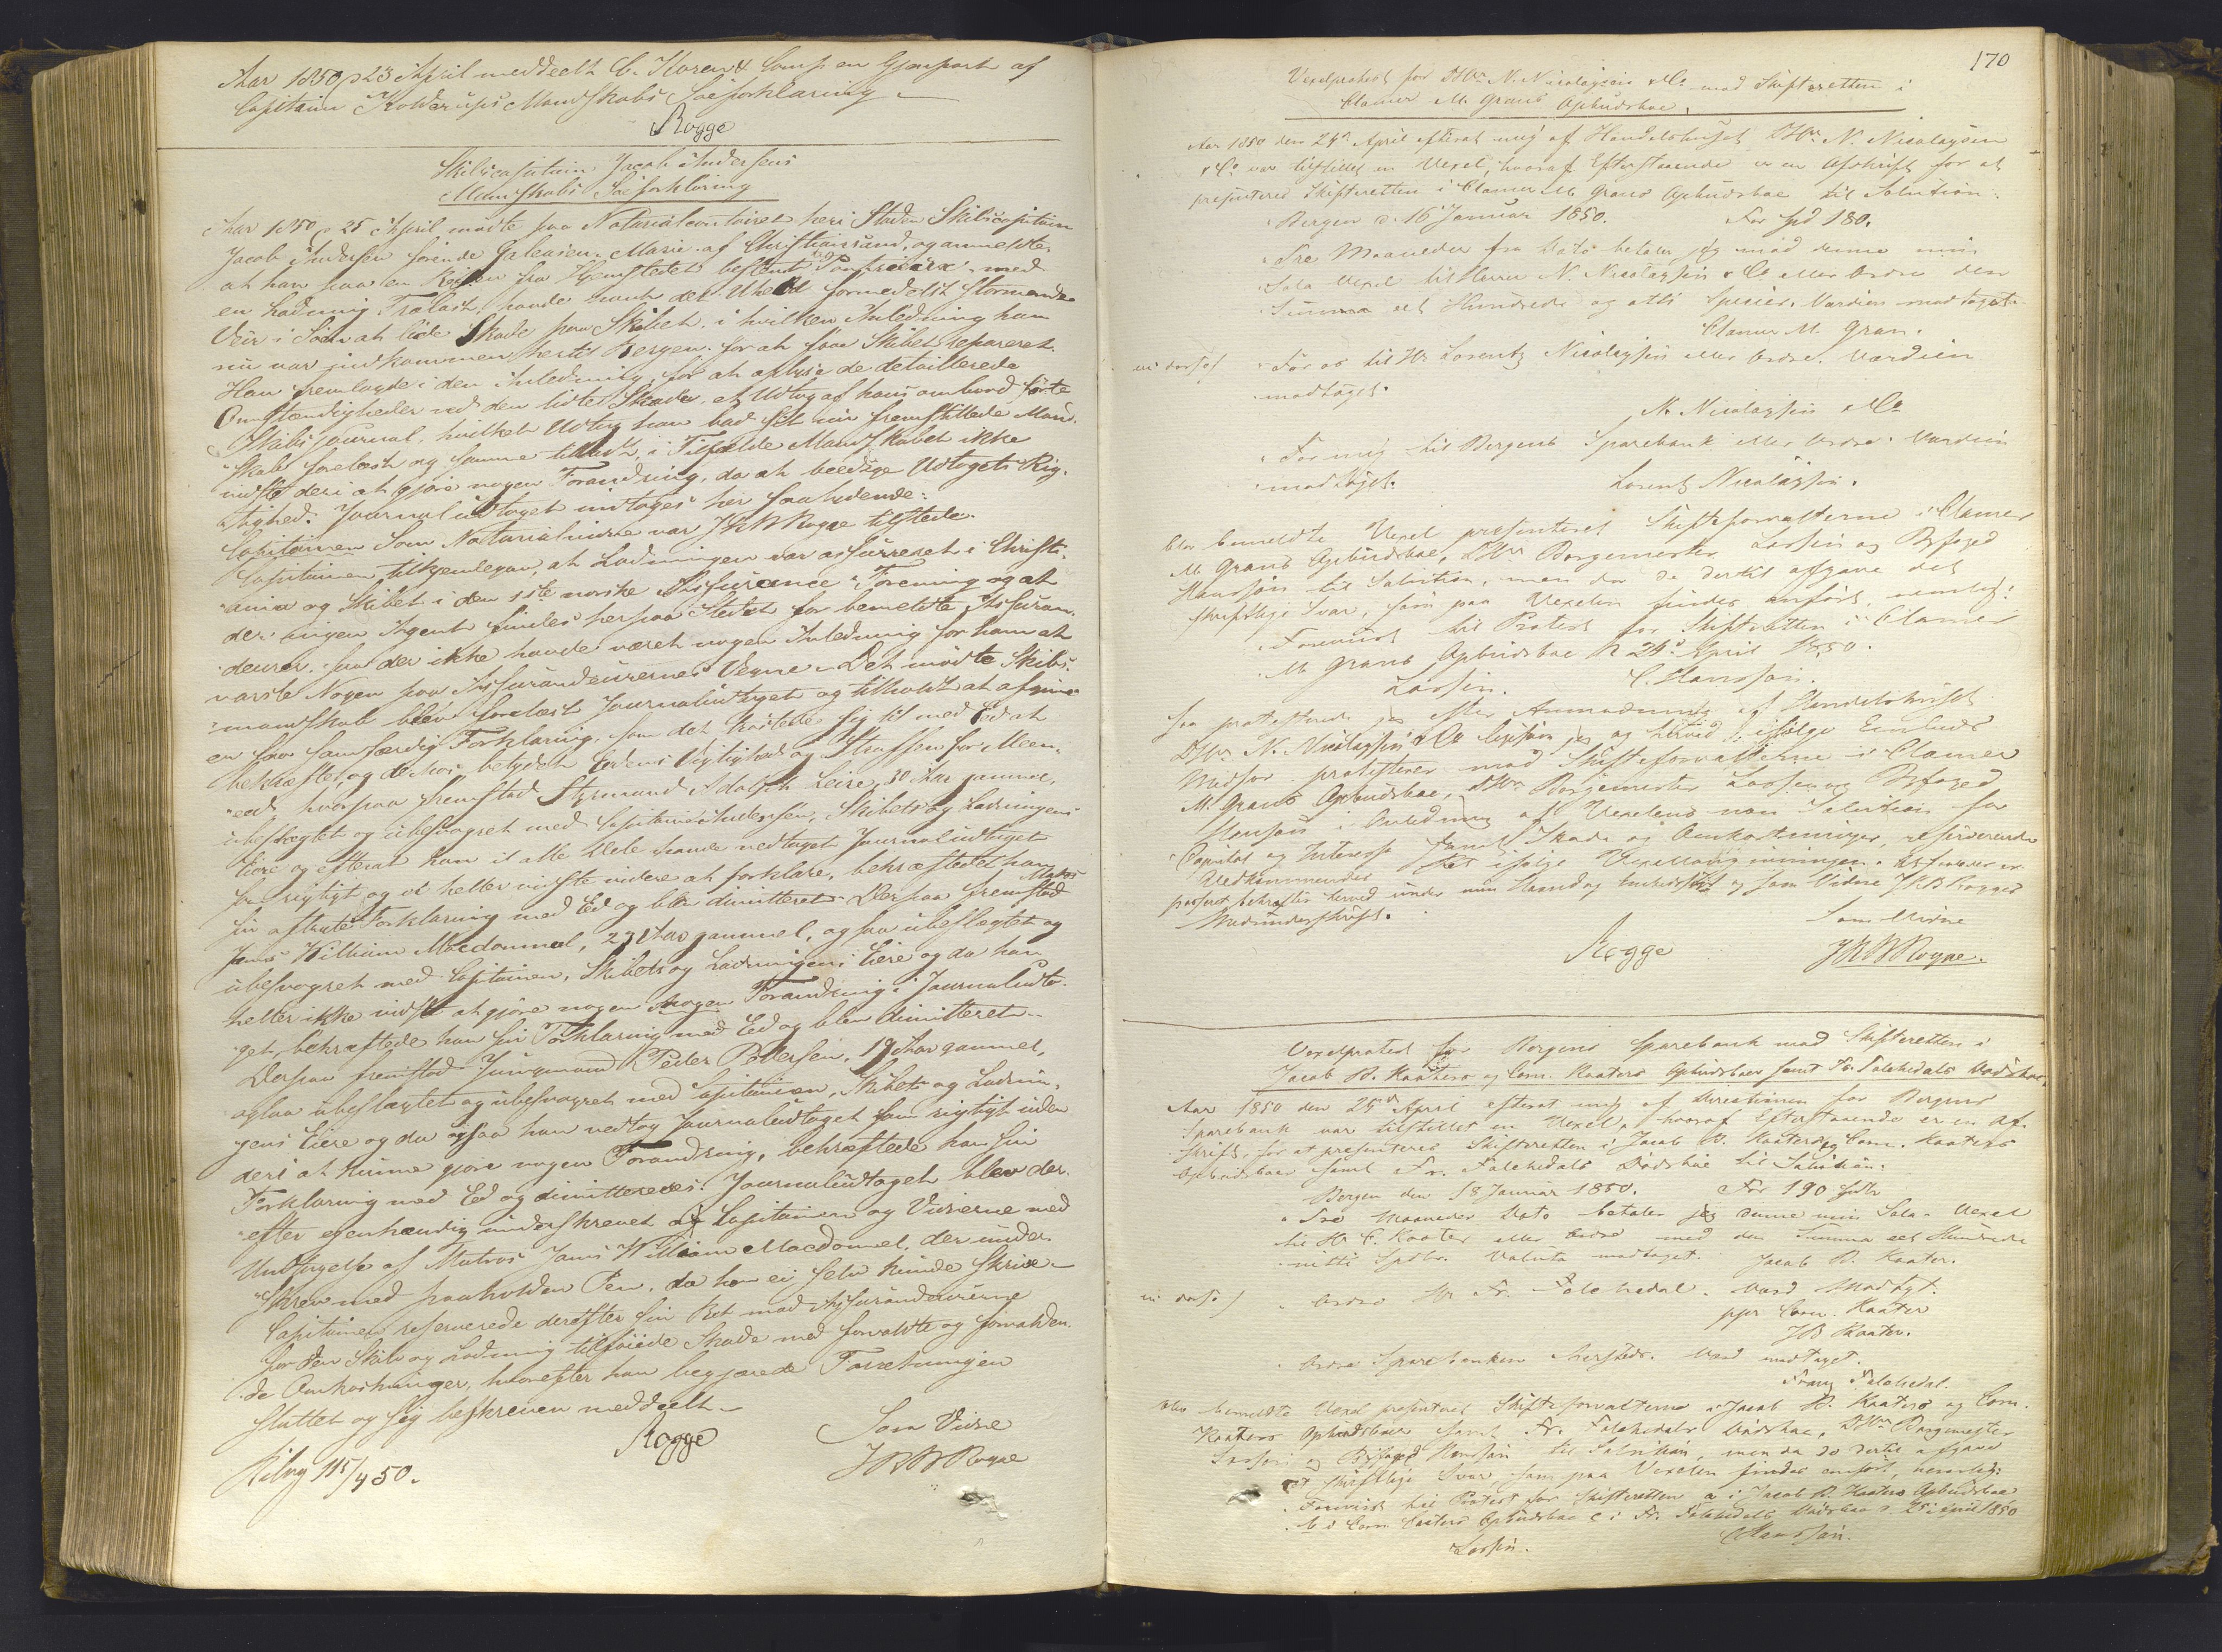 Aar 1850 p 23 April meddeelt C. Konow & Comp. en Gjenpart af
Capitain Kolderups Mandskabs Søeforklaring
Rogge
Skibscapitain Jacob Andersens
Mandskabs Søeforklaring
Aar 1850 p 25 April mødte paa Notarialcontoiret her i Staden Skibscapitain
Jacob Andersen førende Galeasen Marie af Christiansund, og anmeldte,
at han paa en Reise fra Hjemstedet bestemt med
en Ladning Trælast, havde havt det Uheld formedelst stormende
Veir i Søen at lide Skade paa Skibet, i hvilken Anledning han
nu var indkommen hertil Bergen for at faae Skibet repareret.
Han fremlagde i den Anledning for at oplyse de detaillerede
Omstændigheder ved den lidte Skade, et Udtog af hans ombord førte
Skibsjournal, hvilket Udtog han bad sit nu fremstillede Mand-
skab forelæst og samme tilladt, i Tilfælde Mandskabet ikke
vidste deri at gjøre nogen Forandring, da at beedige Udtogets Rig-
tighed. Journaludtoget indtages her saalydende:
Capitainen Som Notarialvidne var JRB Rogge tilstede.
Capitainen tilkjendegav, at Ladningen var assureret i Christi-
ania og Skibet i den 1ste norske Assurance-Forening og at
der ingen Agent findes her paa Stedet for bemeldte Assuran-
deurer, saa der ikke havde været nogen Anledning for ham at
varsle Nogen paa Assurandeurernes Vegne. Det mødte Skibs-
mandskab blev forelæst Journaludtoget og tilholdt at afgive
en saa sandfærdig Forklaring, som det trøstede sig til med Ed at
bekræfte, og derhos betydet Edens Vigtighed og Straffen for Meen-
eed, hvorpaa fremstod Styrmand Adolph Leire, 30 Aar gammel,
ubeslægtet og ubesvogret med Capitain Andersen, Skibets og Ladningens
Eiere og efterat han i et alle Dele havde vedtaget Journaludtoget
for rigtigt og ei heller vidste videre at forklare, bekræftede han
sin aflagte Forklaring med Ed og blev dimitteret. Derpaa fremstod Matros
Jans William Macdonnel, 23 Aar gammel, ogsaa ubeslægtet og
ubesvogret med Capitainen, Skibets og Ladningens Eiere og da han
heller ikke vidste at gjøre nogen nogen Forandring i Journaludto-
get, bekræftede han sin Forklaring med Ed og blev dimitteret.
Derpaa fremstod Jungmand Peder Pettersen, 19 Aar gammel,
ogsaa ubeslægtet og ubesvogret med Capitainen, Skibets og Ladnin-
gens Eiere og da ogsaa han vedtog Journaludtoget som rigtigt uden
deri at kunne gjøre nogen Forandring, bekræftede han sin
Forklaring med Ed og dimitteredes. Journaludtoget blev der-
efter egenhændig underskrevet af Capitainen og Vidnerne med
Undtagelse af Matros Jans William Macdonnel, der under-
skrev med paaholden Pen, da han ei selv kunde skrive.
Capitainen reserverede derefter sin Ret mod Assurandeurerne
for den Skib og Ladning tilføiede Skade med forvoldte og forvolden-
de Omkostninger, hvorefter han begjærede Forretningen
sluttet og sig beskreven meddeelt.
Rogge
Som Vidne
JRB Rogge
50.
170
Vexelprotest for DHrr N. Nicolaysen & Co mod Skifteretten i
Clamer M. Grans Opbudsboe.
Aar 1850 den 24de April efterat mig af Handelshuset DHrr N. Nicolaysen
& Co var tilstillet en Vexel, hvoraf Efterstaaende er en Afskrift for at
presentered Skifteretten i Clamer M. Grans Opbudsboe til Solution:
Bergen d. 16 Januar 1850. For Spd 180.
Tre Maaneder fra Dato betaler jeg mod denne min
Sola Vexel til Herrer N. Nicolaysen & Co eller Ordre den
Summa eet Hundrede og otti Species. Værdien modtaget.
Clamer M. Gran.
in dorso For os til Hr Lorentz Nicolaysen eller Ordre. Værdien
modtaget.
N. Nicolaysen & Co
For mig til Bergens Sparebank eller Ordre. Værdien
modtaget.
Lorentz Nicolaysen.
Blev bemeldte Vexel presenteret Skifteforvalterne i Clamer
M. Grans Opbudsboe, DHrr Borgemester Lossius og Byfoged
Hansson til Solution, men da de dertil afgave det
skriftlige Svar, som paa Vexelen findes anført, nemlig:
Foreviist til Protest for Skifteretten i Clamer
M. Grans Opbudsboe d. 24de April 1850.
Lossius. C. Hansson.
Saa protesterede jeg efter Anmodning af Handelshuset
DHrr N. Nicolaysen & Co ligesom jeg og herved ifølge Embeds
Medfør protesterer mod Skifteforvalterne i Clamer
M. Grans Opbudsboe, DHrr Borgemester Lossius og Byfoged
Hansson i Anledning af Vexelens non Solution for
Capital og Interesse samt Skade og Omkostninger, reserverende
Vedkommendes Ret ifølge Vexellovgivningen. At saaledes er
passeret bekræftes herved under min Haand og Embedssegl og som Vidne JRB Rogges
Medunderskrift.
Rogge
Som Vidne
JRB Rogge.
Vexelprotest for Bergens Sparebank mod Skifteretten i
Jacob B. Kaaters og Corn. Kaaters Opbudsboer samt Fr. Falchedals Dødsboe.
Aar 1850 den 25de April efterat mig af Directionen for Bergens
Sparebank var tilstillet en Vexel, hvoraf Efterstaaende er en Af-
skrift, for at presenteres Skifteretten i Jacob B. Kaaters og Corn. Kaaters
Opbudsboer samt Fr. Falchedals Dødsboe til Solution:
Bergen den 18 Januar 1850. For 190 Spdlr
Tre Maaneder Dato betaler jeg denne min Sola-Vexel
til Hr C. Kaater eller Ordre med den Summa eet Hundrede
nitti Spdlr. Valuta modtaget. Jacob B. Kaater.
in dorso Ordre Hr Fr. Falchedal. Værd. modtagt.
ppr Corn. Kaater
JB Kaater.
Ordre Sparebanken hersteds. Værd modtaget.
Franz Falchedal.
Blev bemeldte Vexel presenteret Skifteforvalterne i Jacob B. Kaaters og Corn.
Kaaters Opbudsboer samt Fr. Falchedals Dødsboe, DHrr Borgemester
Lossius og Byfoged Hansson til Solution, men da de dertil afgave
et skriftligt Svar, som paa Vexelen findes anført, nemlig:
Foreviist til Protest for Skifteretten a i Jacob B. Kaaters Opbudsboe
b i Corn. Kaaters Opbudsboe c i Fr. Falchedals Dødsboe d. 25 April 1850
Lossius. C Hansson.